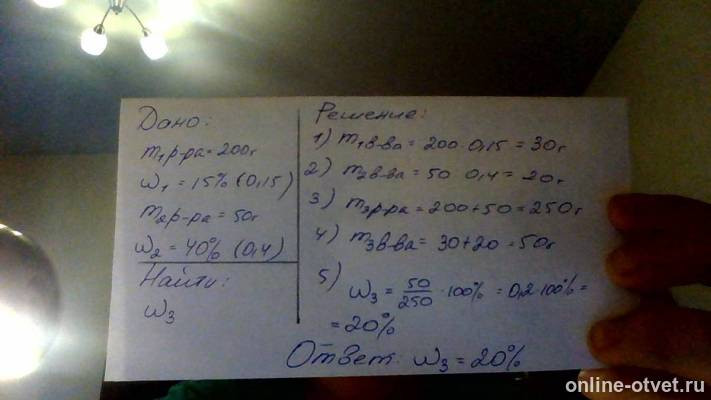 Дано:
m₁р-ра = 200г
ω₁ = 15% (0,15)
m₂р-ра = 50г
ω₂ = 40% (0,4)
Найти:
ω₃
Решение:
1) m₁в-ва = 200 · 0,15 = 30г
2) m₂в-ва = 50 · 0,4 = 20г
3) m₃р-ра = 200+50 = 250г
4) m₃в-ва = 30+20 = 50г
5) ω₃ = 50/250 · 100% = 0,2 · 100% =
= 20%
Ответ: ω₃ = 20%
online-otvet.ru